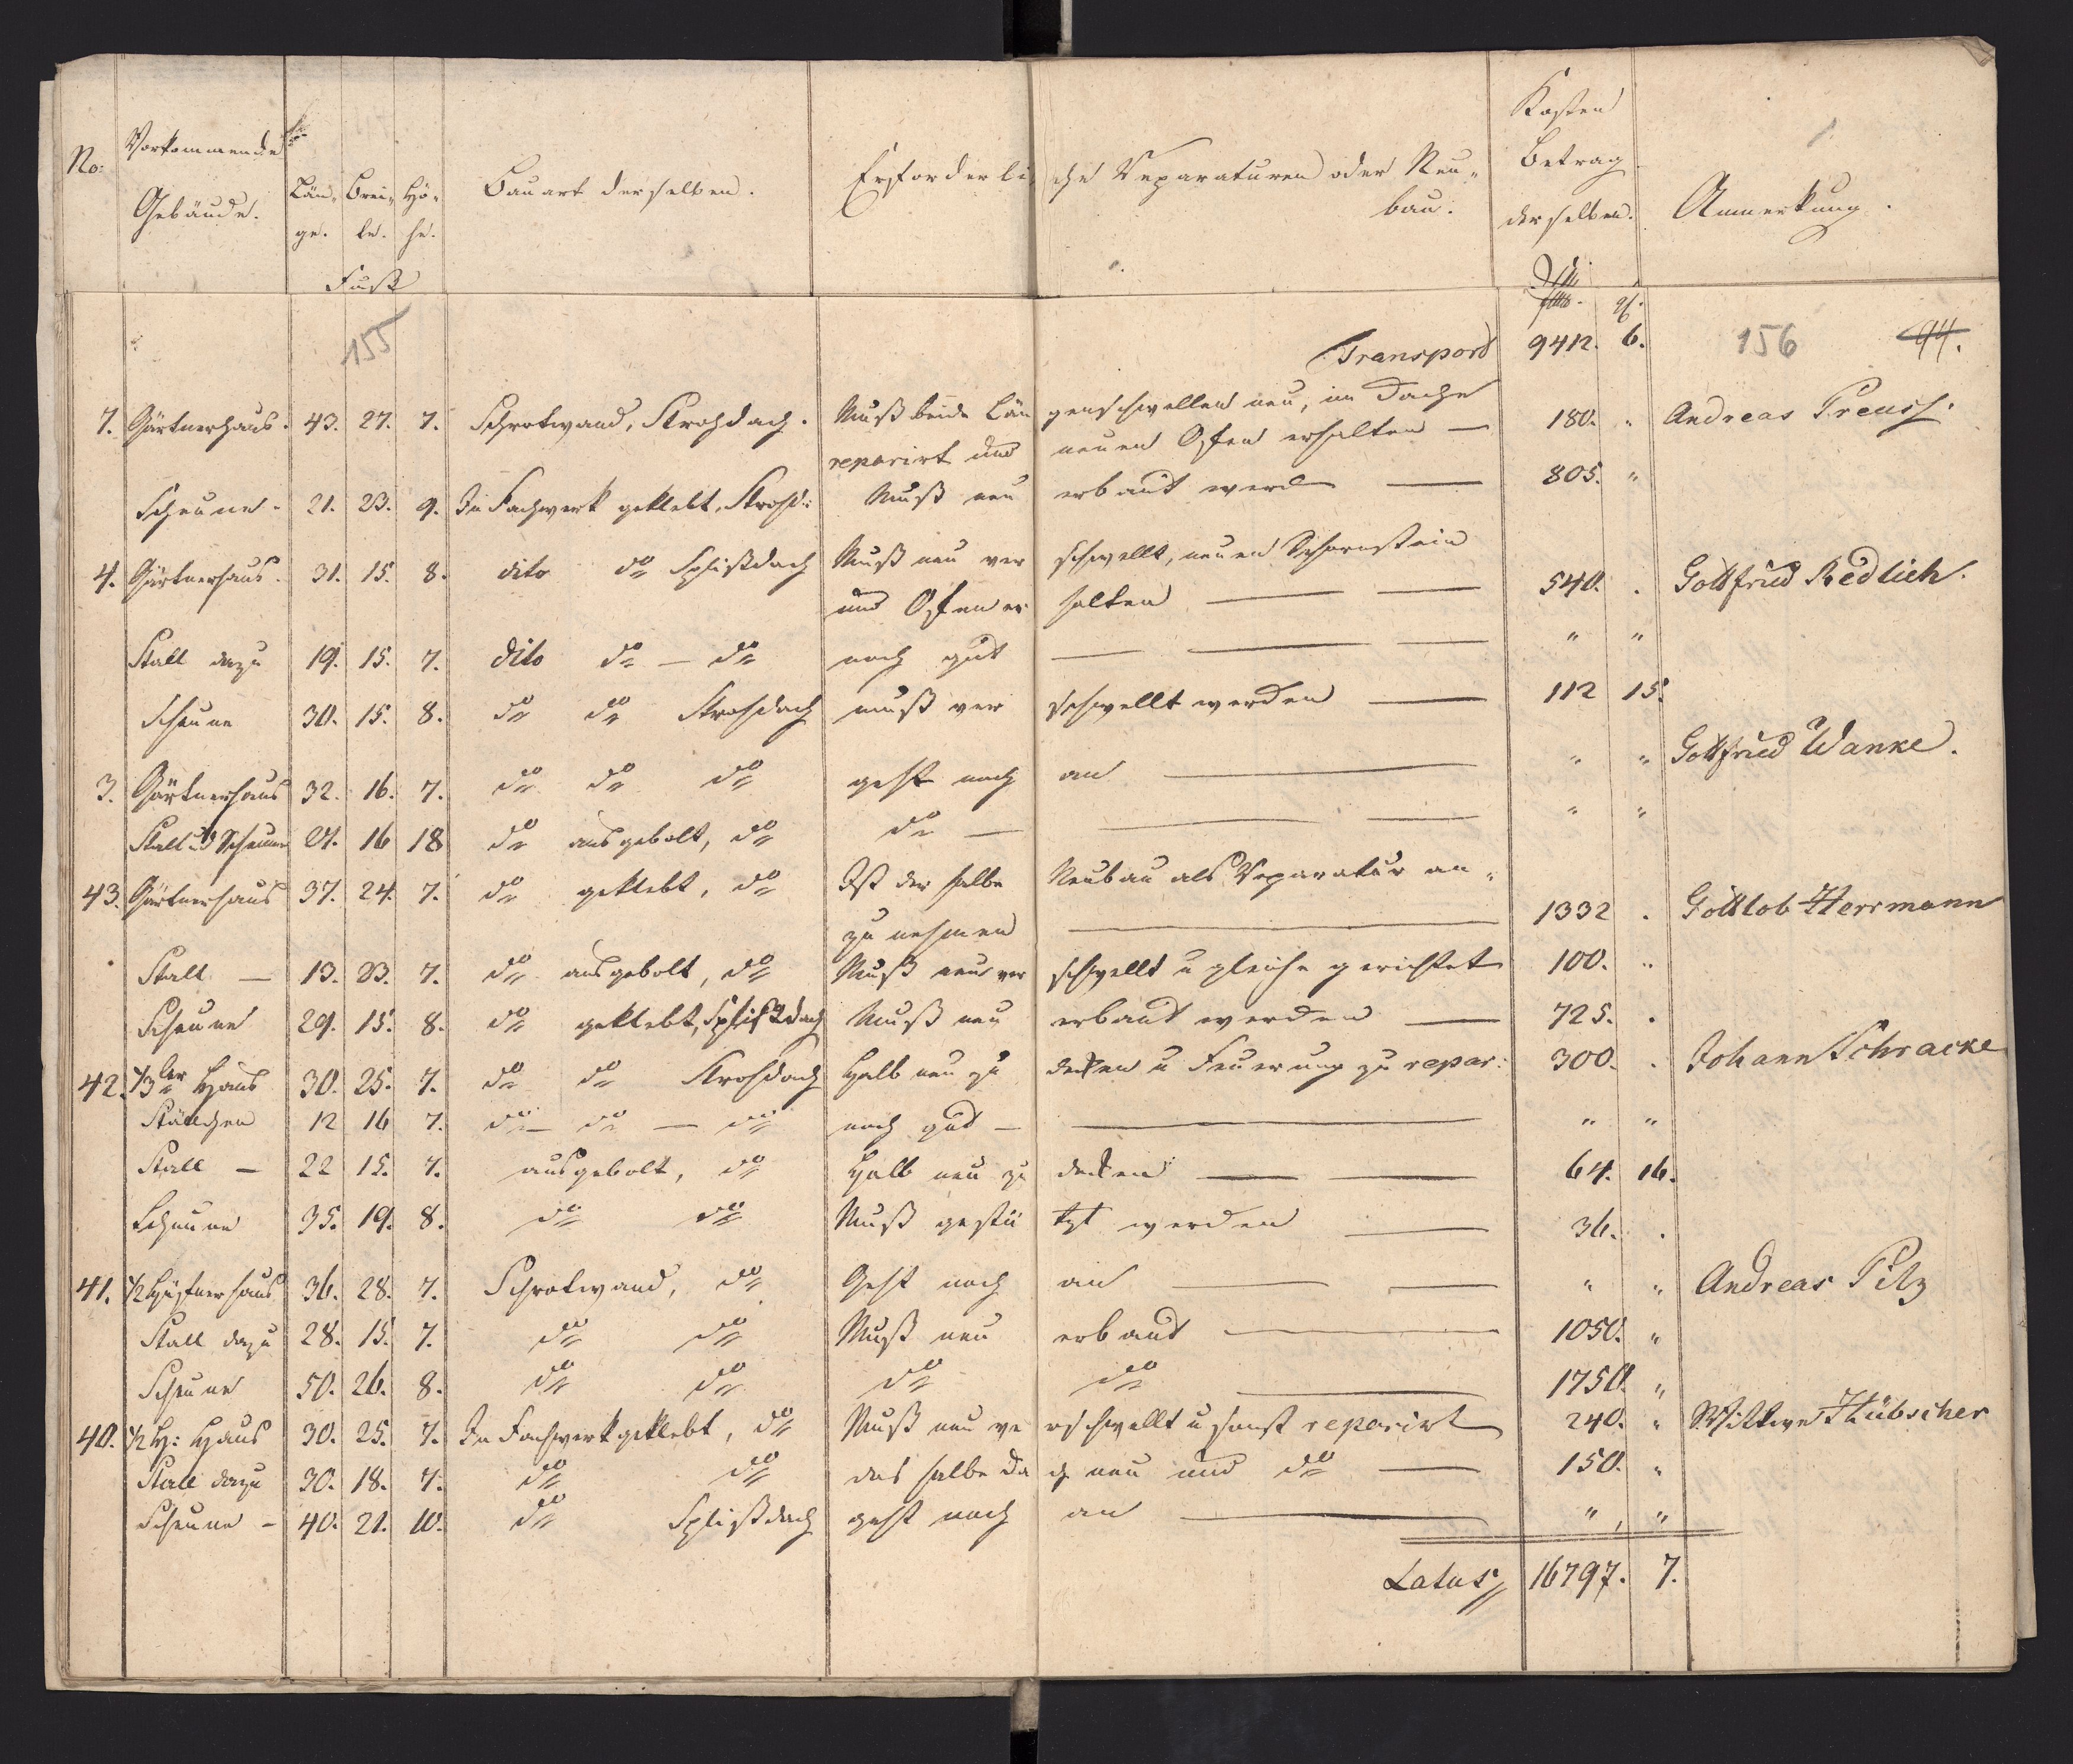 No: Vorkommende Gebäude. Län- ge. Brei- te. Hö- he. Fuß Bauart derselben. Erforderliche Reparaturen oder Neu- bau. Kosten Betrag derselben. Anmerkung.
155 Transport 9412. 6. 156 44.
7. Gärtnerhaus. 43. 27. 7. Schrotwand, Strohdach. Muß beide Längenschwellen neu, im Dache
reparirt und neuen Ofen erhalten — 180. " Andreas Preusch.
Scheune. 21. 23. 9. In Fachwerk geklebt, Strohd: Muß neu erbaut werd — 805. "
4. Gärtnerhaus. 31. 15. 8. dito do Splißdach Muß neu verschwellt, neuen Schornstein
und Ofen erhalten — — 540. . Gottfried Redlich.
Stall dazu 19. 15. 7. dito do — do noch gut — — — " "
Scheune 30. 15. 8. do do Strohdach muß verschwellt werden — 112 15.
3. Gärtnerhaus 32. 16. 7. do do do geht noch an — " " Gottfried Wanke.
Stall u Scheune 27. 16 18 do ausgebolt, do do — — — " "
43. Gärtnerhaus 37. 24. 7. do geklebt, do Ist der halbe Neubau als Reparatur an-
zu nehmen — 1332 . Gottlob Herrmann
Stall — 13. 23. 7. do ausgebolt, do Muß neu verschwellt u gleiche gerichtet 100. "
Scheune 29. 15. 8. do geklebt, Splißdach Muß neu erbaut werden — 725. .
42. 1/3ler Haus 30. 25. 7. do do Strohdach Halb neu zu decken u Feuerung zu repar: 300. . Johann Schracke
Ställchen 12 16 7. do — do — do noch gut — — " "
Stall — 22 15. 7. ausgebolt, do Halb neu zu decken — — 64. 16.
Scheune 35. 19. 8. do do Muß gestützt werden — 36. .
41. 1/2 Hüfnerhaus 36. 28. 7. Schrotwand, do Geht noch an — — " " Andreas Pilz
Stall dazu 28. 15. 7. do do Muß neu erbaut — 1050. "
Scheune 50. 26. 8. do do do do — 1750. "
40. 1/2 H: Haus 30. 25. 7. In Fachwerk geklebt, do Muß neu verschwellt u sonst reparirt 240. " Wittwe Hübscher
Stall dazu 30. 18. 7. do do das halbe Dach neu und do — 150. "
Scheune — 40. 21. 10. do Splißdach geht noch an — " "
Latus 16797. 7.